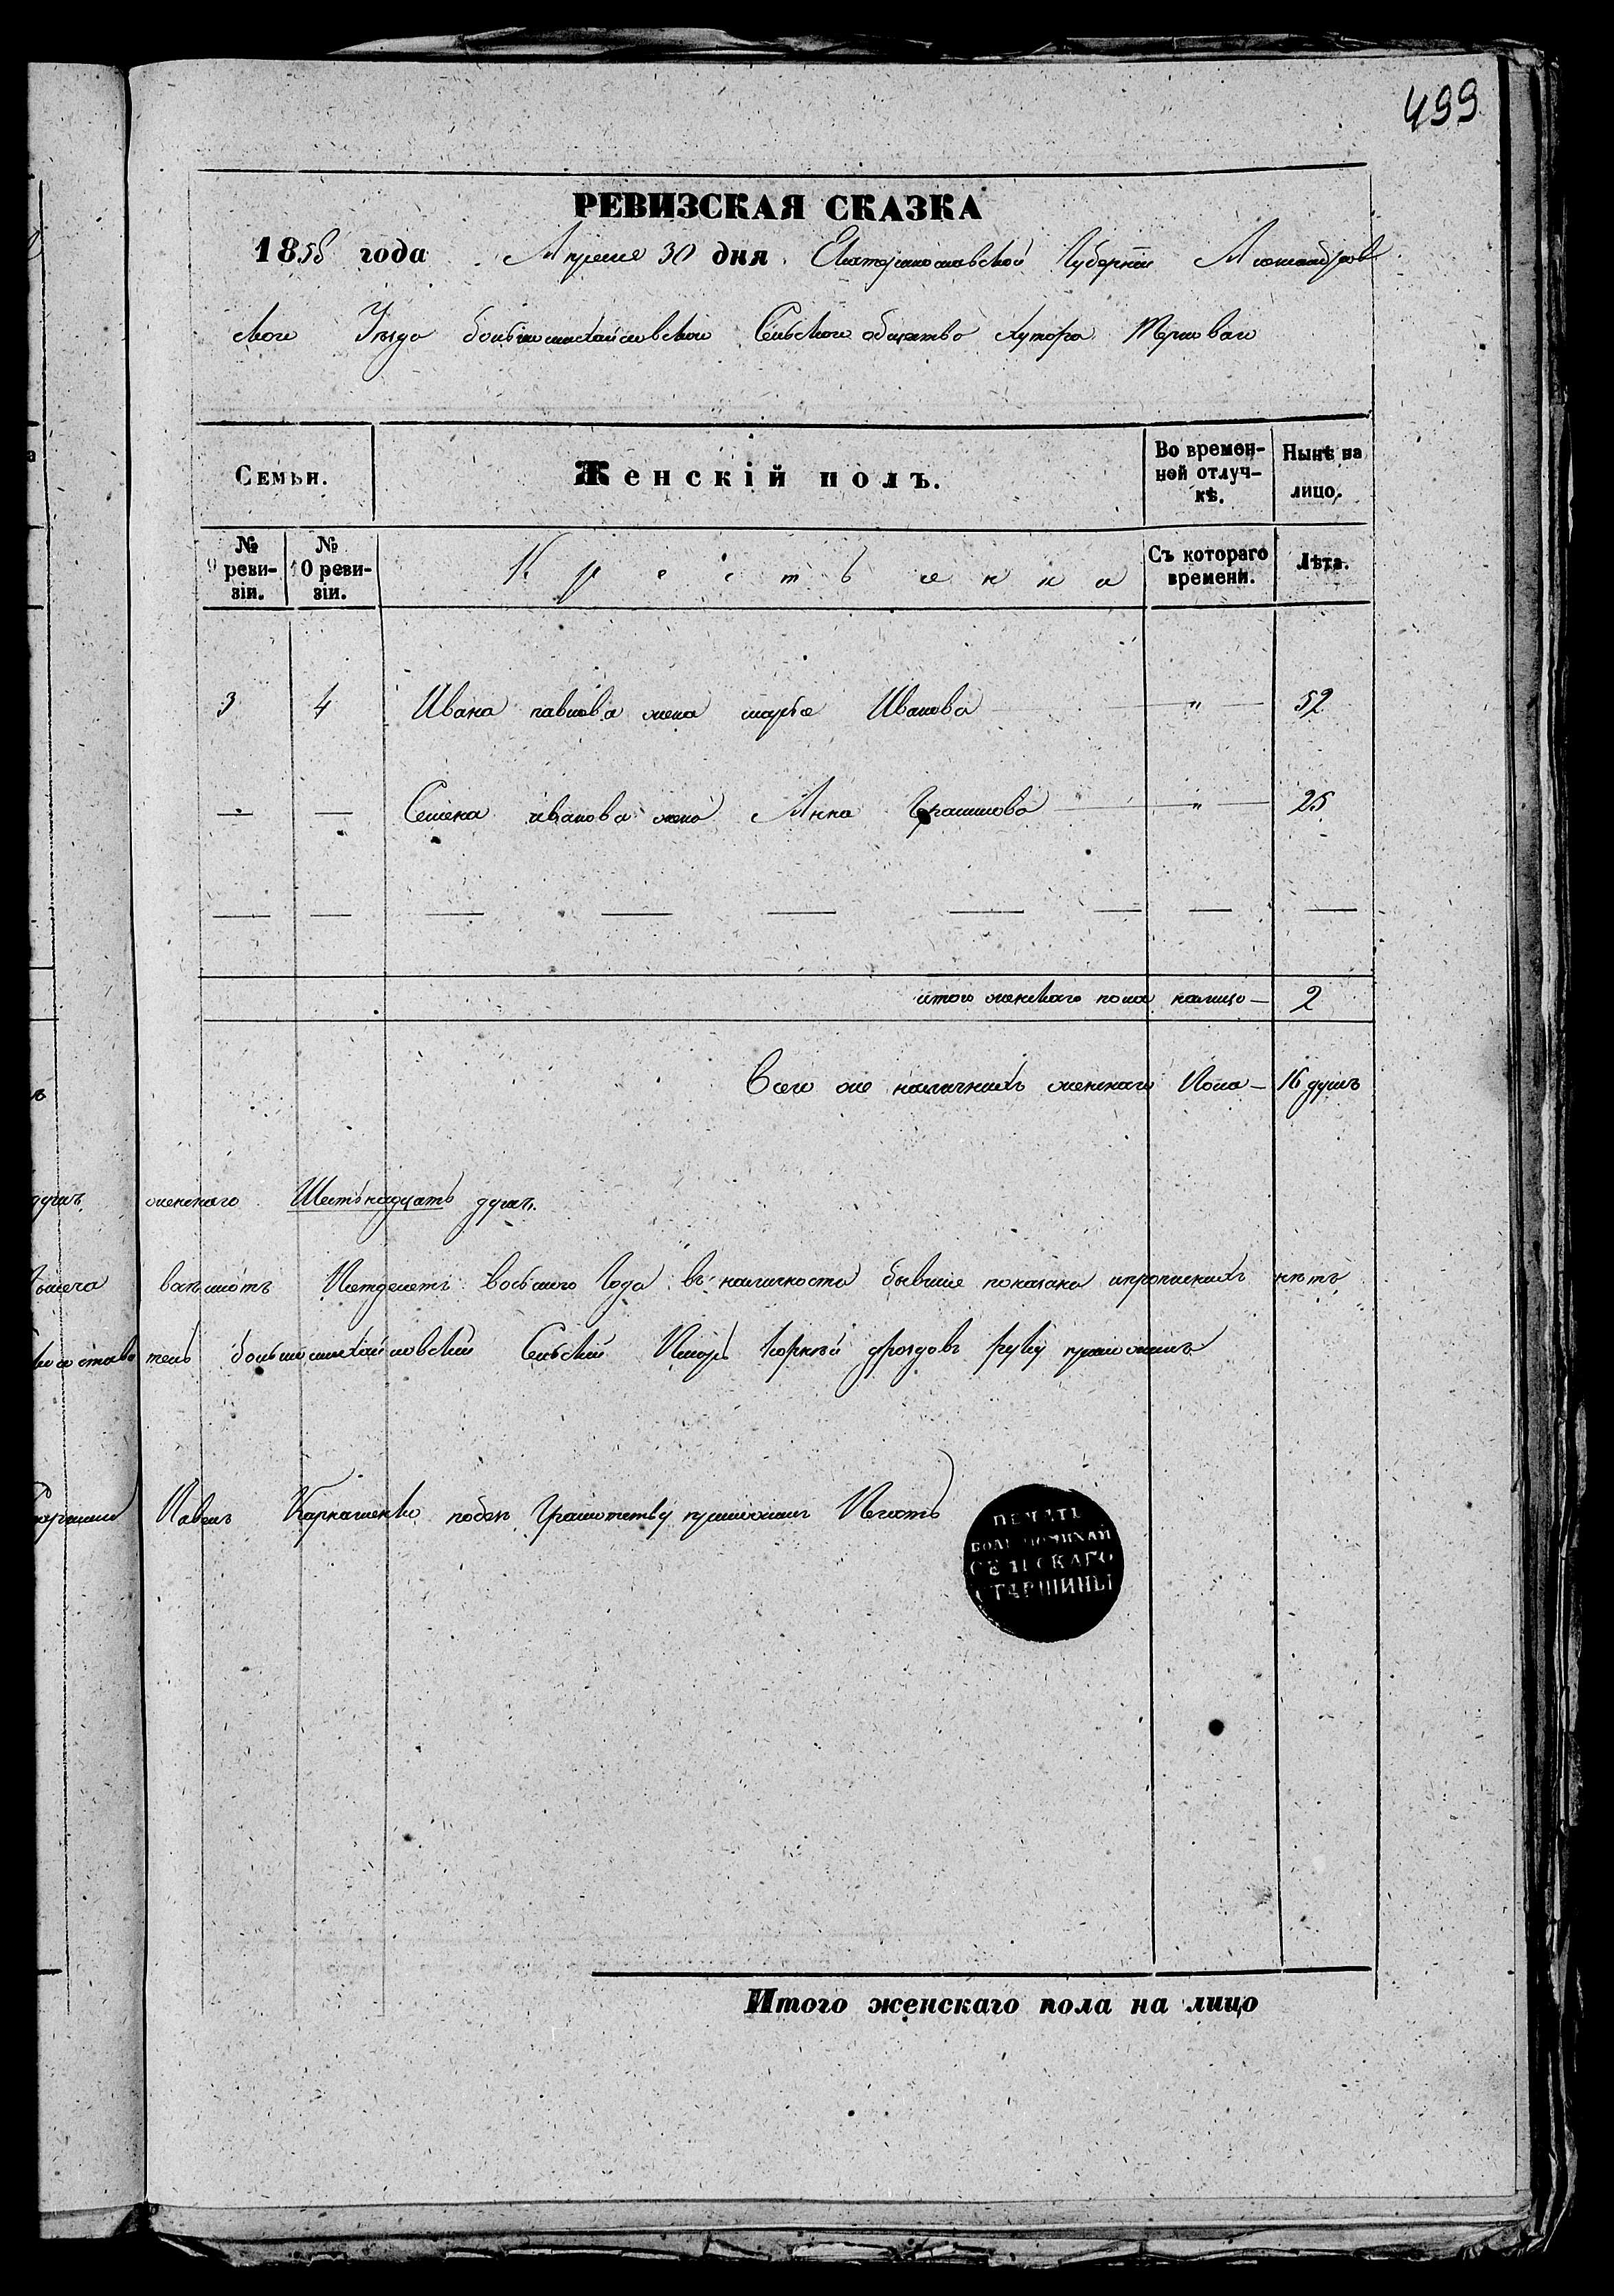 499
РЕВИЗСКАЯ СКАЗКА
1858 года Апреля 30 дня Екатеринославской Губернiи Александров
ского Уезда большемихайловского Сельского общества хутора Терноваго
Семьи. Женскiй полъ. Во времен-ной отлуч-кѣ. Нынѣ на лицо.
№ 9 реви-зiи. № 10 реви-зiи. Крестьянка Съ котораго времени. Лѣта.
3 4 Ивана павлова жена марья Иванова — " — 52
— — Семена иванова жена Анна Герасимова — " — 25
итого женскаго пола налицо — 2
Всего же наличныхъ женскаго Пола — 16 душъ
душъ женскаго Шестьнадцать душъ.
Пятдесятъ восьмого Года въ наличности бывшие показаны ипрописныхъ нѣтъ
большемихайловский Сельский Писарь Корней дроздовъ руку приложилъ
Павелъ Карнашенко Грамотству приложилъ Печать
ПЕЧАТЬ
БОЛЬШОМИХАЙ
СЕЛЬСКАГО
СТАРШИНЫ
Итого женскаго пола на лицо